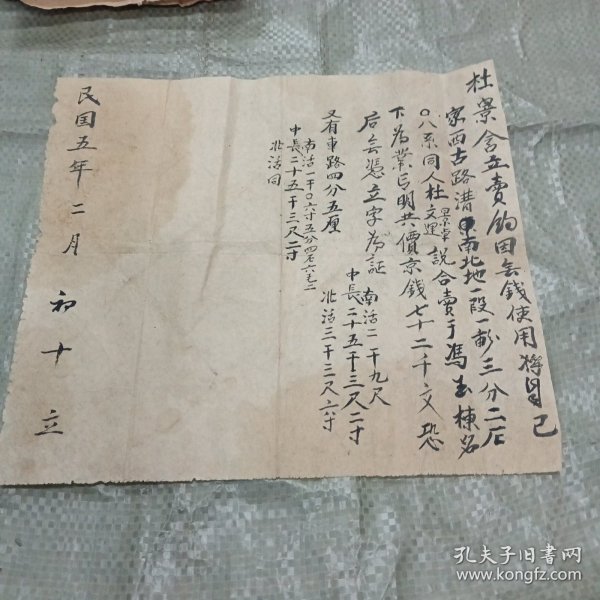 杜景含立卖的因无錢使用將自己
家西古路潽南北地一段一畝三分二厘
〇八系同人杜文運景卓說合賣于馮玉棟名
下為業言明共價京錢七十二千文恐
后無憑立字為証
南活二干九尺
中長二十五干三尺二寸
北活三干三尺六寸
又有車路四分五厘
南活一干〇六寸五分四厘六毛二
中長二十五干三尺二寸
北活同
民国五年二月初十立
孔夫子旧书网
www.kongfz.com